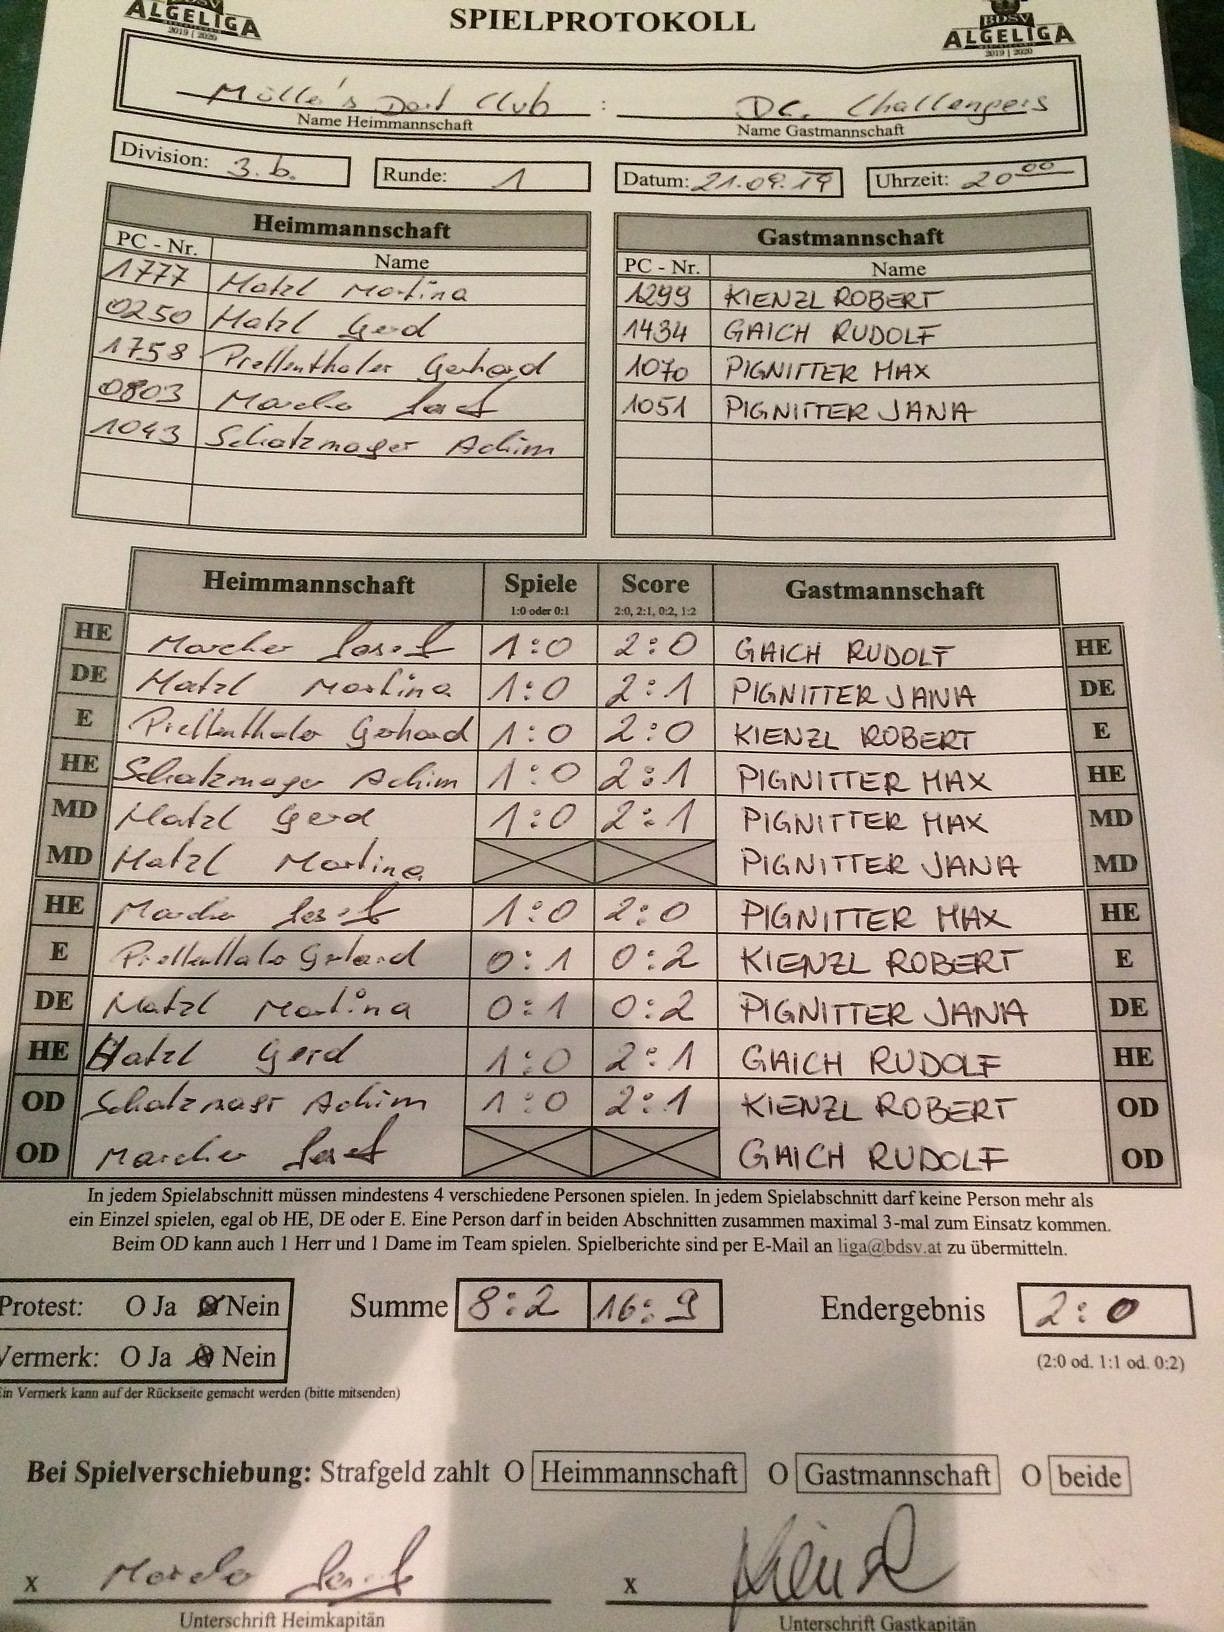 BDSV
ALGELIGA
2019 | 2020
SPIELPROTOKOLL
BDSV
ALGELIGA
2019 | 2020
Mölle's Dart Club : DC. Challengers
Name Heimmannschaft Name Gastmannschaft
Division: 3.b. Runde: 1 Datum: 21.09.19 Uhrzeit: 20 00
Heimmannschaft
PC - Nr. Name
1777 Matzl Martina
0250 Matzl Gerd
1758 Prettenthaler Gerhard
0803 Marcher Josef
1043 Schatzmayer Achim
Gastmannschaft
PC - Nr. Name
1299 KIENZL ROBERT
1434 GAICH RUDOLF
1070 PIGNITTER MAX
1051 PIGNITTER JANA
Heimmannschaft Spiele Score Gastmannschaft
1:0 oder 0:1 2:0, 2:1, 0:2, 1:2
HE Marcher Josef 1:0 2:0 GAICH RUDOLF HE
DE Matzl Martina 1:0 2:1 PIGNITTER JANA DE
E Prettenthaler Gerhard 1:0 2:0 KIENZL ROBERT E
HE Schatzmayer Achim 1:0 2:1 PIGNITTER MAX HE
MD Matzl Gerd 1:0 2:1 PIGNITTER MAX MD
MD Matzl Martina PIGNITTER JANA MD
HE Marcher Josef 1:0 2:0 PIGNITTER MAX HE
E Prettenthaler Gerhard 0:1 0:2 KIENZL ROBERT E
DE Matzl Martina 0:1 0:2 PIGNITTER JANA DE
HE Matzl Gerd 1:0 2:1 GAICH RUDOLF HE
OD Schatzmayer Achim 1:0 2:1 KIENZL ROBERT OD
OD Marcher Josef GAICH RUDOLF OD
In jedem Spielabschnitt müssen mindestens 4 verschiedene Personen spielen. In jedem Spielabschnitt darf keine Person mehr als
ein Einzel spielen, egal ob HE, DE oder E. Eine Person darf in beiden Abschnitten zusammen maximal 3-mal zum Einsatz kommen.
Beim OD kann auch 1 Herr und 1 Dame im Team spielen. Spielberichte sind per E-Mail an liga@bdsv.at zu übermitteln.
Protest: O Ja O Nein Summe 8:2 16:9 Endergebnis 2:0
Vermerk: O Ja O Nein (2:0 od. 1:1 od. 0:2)
Ein Vermerk kann auf der Rückseite gemacht werden (bitte mitsenden)
Bei Spielverschiebung: Strafgeld zahlt O Heimmannschaft O Gastmannschaft O beide
x Marcher Josef x Kienzl
Unterschrift Heimkapitän Unterschrift Gastkapitän